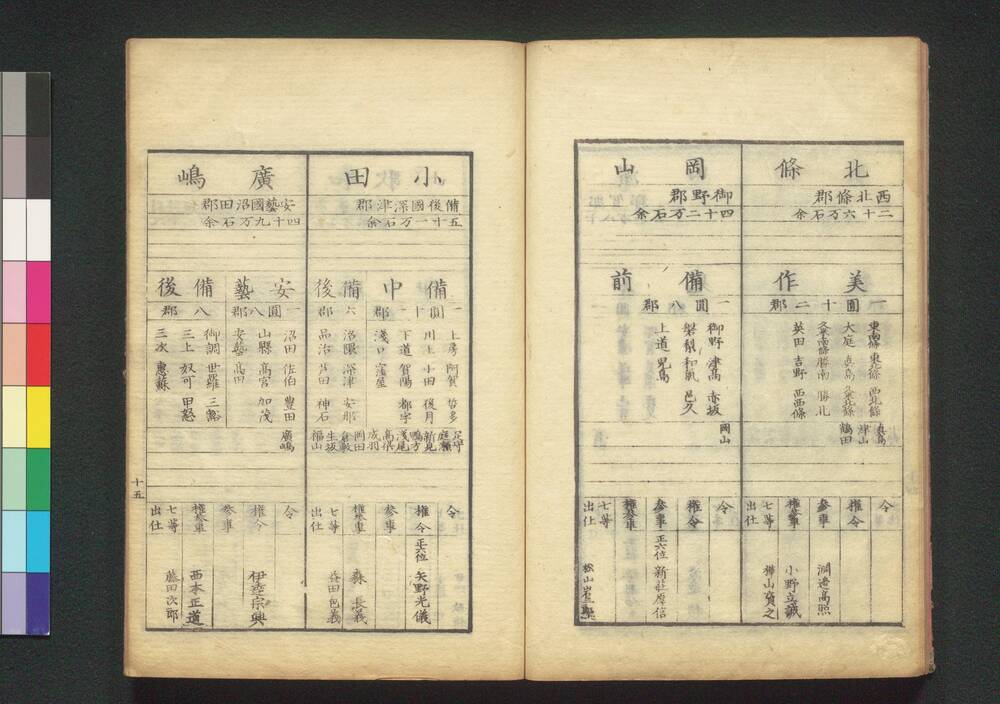 北條
西北條郡
二十六万石余
美作
一國十二郡
東南條 東北條 西北條
大庭 真島 久米北條
久米南條 勝南 勝北
英田 吉野 西西條
真島
津山
鶴田
令
権令
参事
渕邉高照
権参事
小野立誠
七等出仕
横山寛之
岡山
御野郡
四十二万石余
備前
一國八郡
御野 津高 赤坂
磐梨 和氣 邑久
上道 児島
岡山
令
権令
参事
正六位 新莊厚信
権参事
七等出仕
小田
備後國深津郡
五十一万石余
備中
一國十一郡
上房 阿賀 哲多
川上 小田 後月
下道 賀陽 都宇
浅口 窪屋
備後
六郡
沼隈 深津 安那
品治 芦田 神石
足守
庭瀬
新見
鴨方
浅尾
高梁
成羽
岡田
倉敷
生坂
福山
令
権令
正六位 矢野光儀
参事
権参事
森長義
七等出仕
益田包義
廣嶋
安藝國沼田郡
四十九万石余
安藝
一國八郡
沼田 佐伯 豊田
山縣 高宮 加茂
安藝 高田
備後
八郡
御調 世羅 三谿
三上 奴可 甲怒
三次 惠蘇
廣嶋
令
権令
伊達宗興
参事
権参事
西本正道
七等出仕
藤田次郎
十五